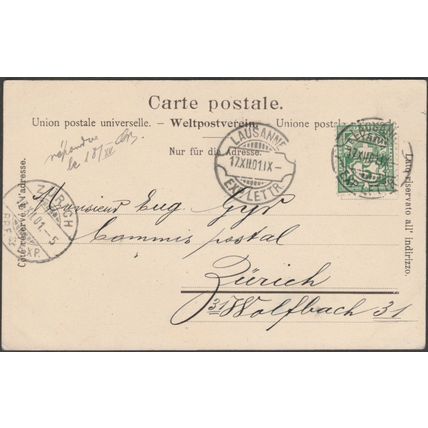 Carte postale.
Union postale universelle. — Weltpostverein. — Unione postale
Nur für die Adresse.
répondu
le 18/XII
LAUSANNE
17.XII.01.IX–
EXP.LETTR.
LAUSANNE
17.XII.01
EXP.
Côté réservé à l'adresse.
Lato riservato all' indirizzo.
ZÜRICH
01.–5
EXP.
Monsieur Eug Gyr
Commis postal
Zürich
31 Wolfbach 31